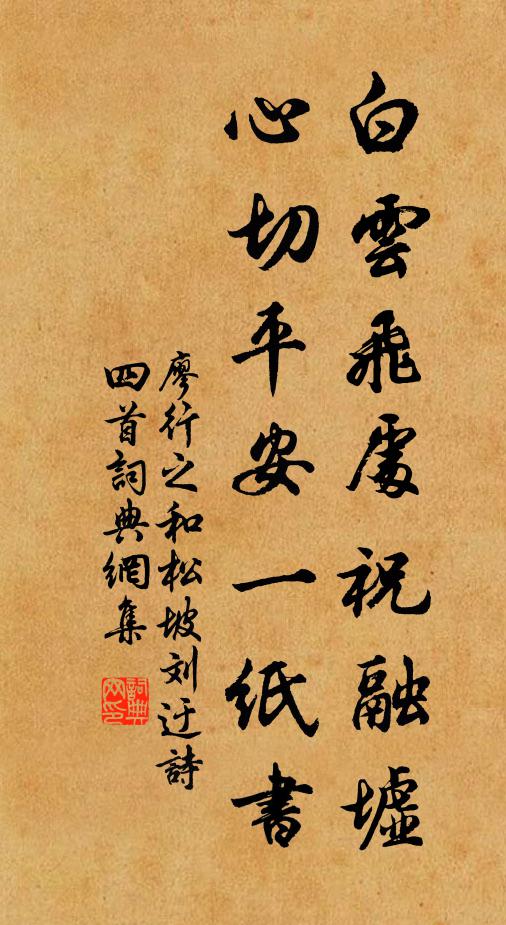 白雲飛處祝融墟
心切平安一紙書
廖行之和松坡刘迂詩
四首詞典網集
詞典網印